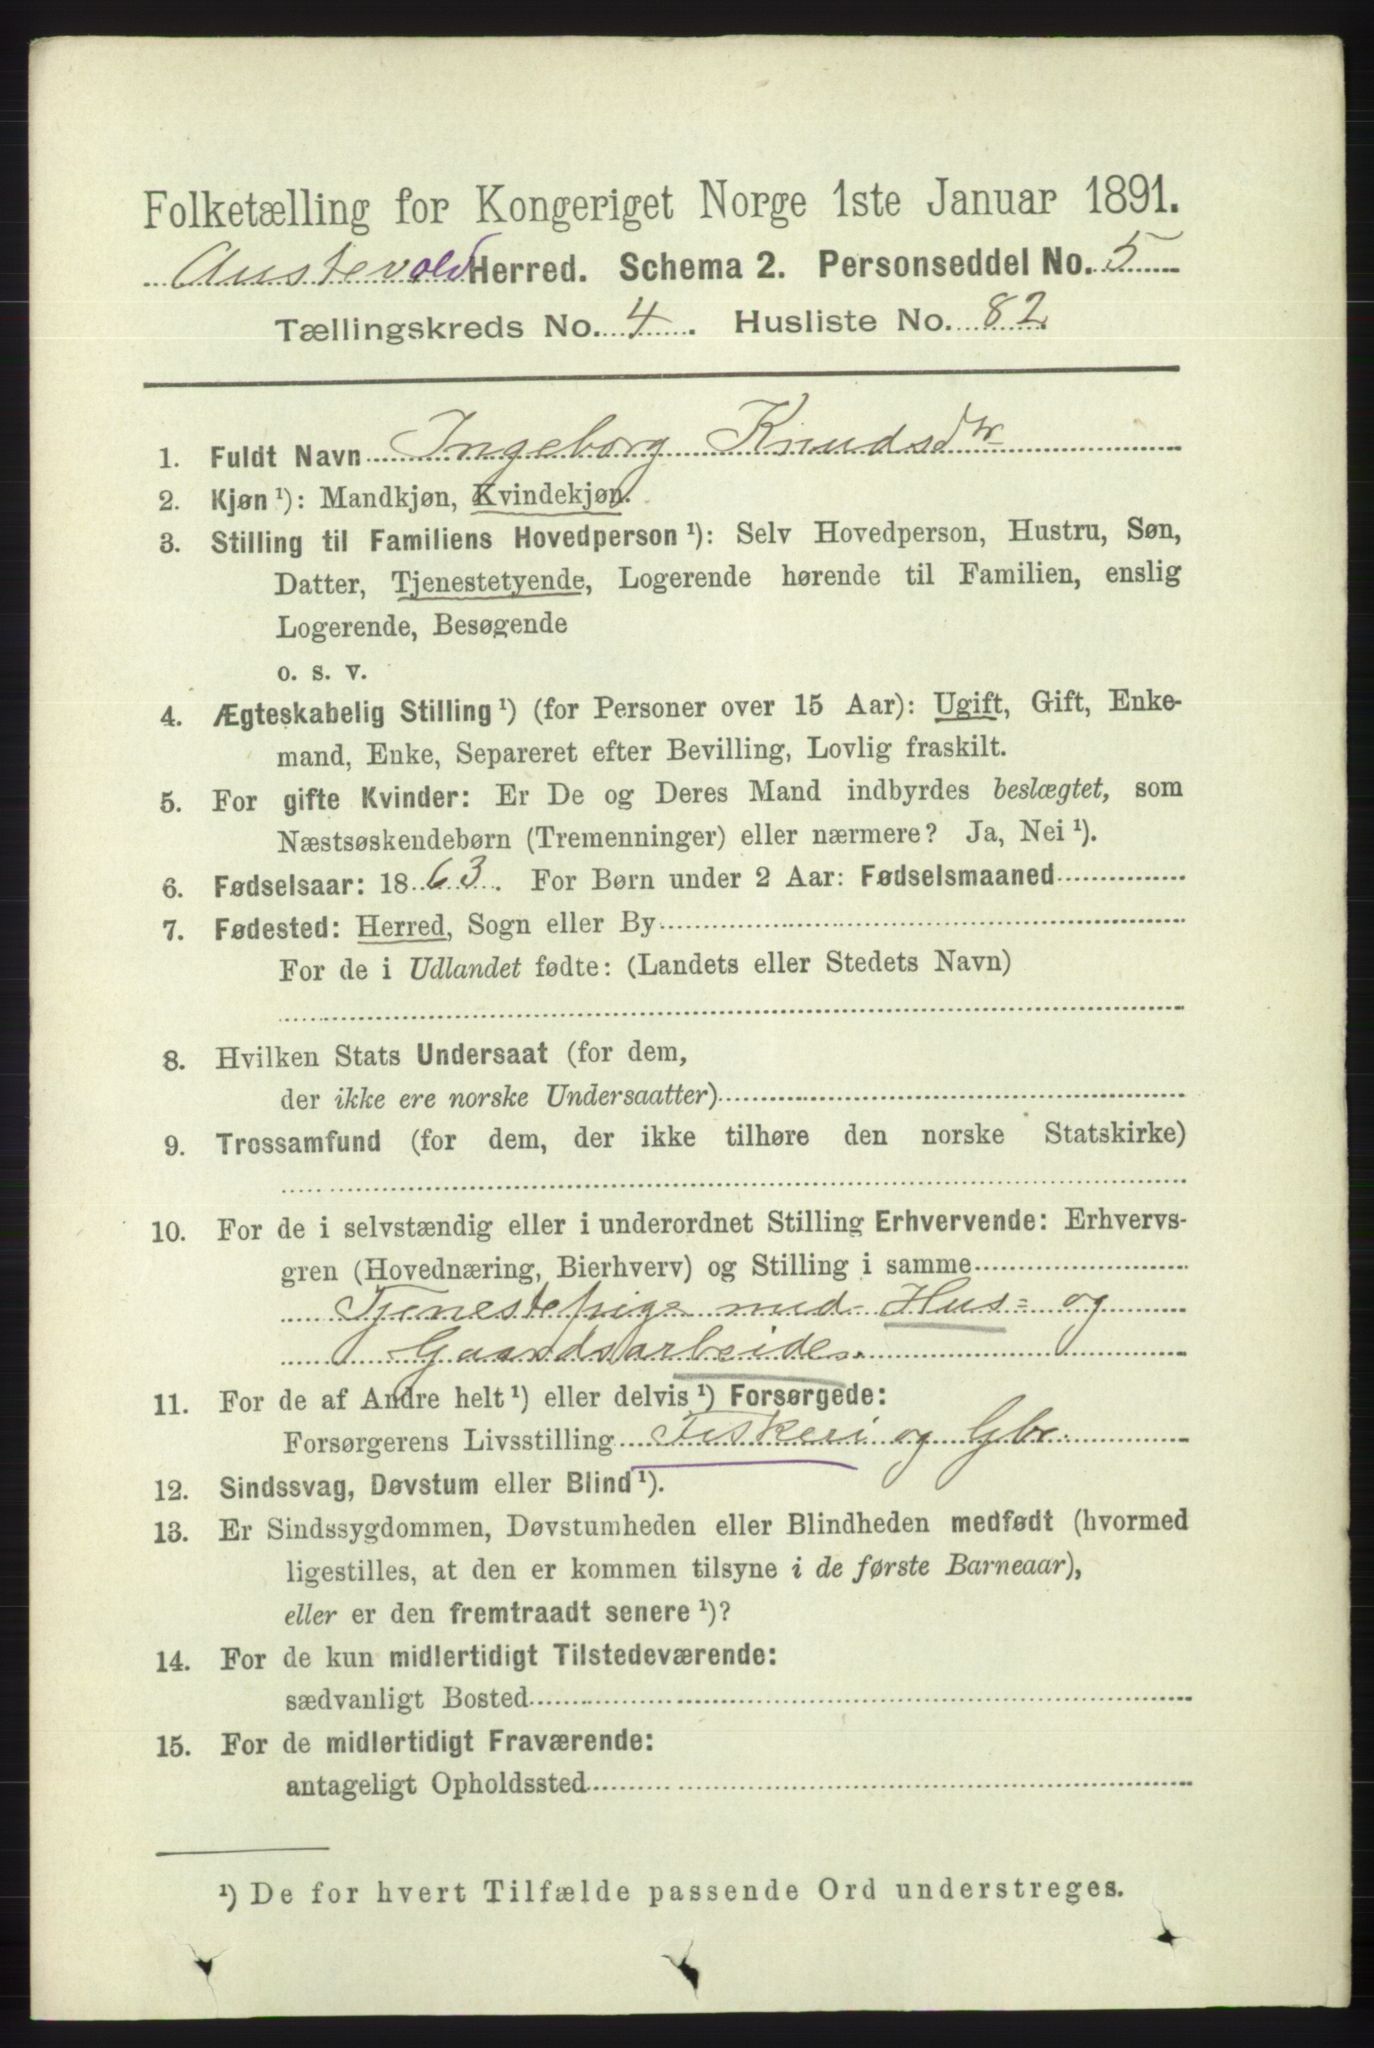 Folketælling for Kongeriget Norge 1ste Januar 1891.
Austevold Herred. Schema 2. Personseddel No. 5
Tællingskreds No. 4. Husliste No. 82.
1. Fuldt Navn Ingeborg Knudsdtr
2. Kjøn ¹): Mandkjøn, Kvindekjøn.
3. Stilling til Familiens Hovedperson ¹): Selv Hovedperson, Hustru, Søn,
Datter, Tjenestetyende, Logerende hørende til Familien, enslig
Logerende, Besøgende
o. s. v.
4. Ægteskabelig Stilling ¹) (for Personer over 15 Aar): Ugift, Gift, Enke-
mand, Enke, Separeret efter Bevilling, Lovlig fraskilt.
5. For gifte Kvinder: Er De og Deres Mand indbyrdes beslægtet, som
Næstsøskendebørn (Tremenninger) eller nærmere? Ja, Nei ¹).
6. Fødselsaar: 1863. For Børn under 2 Aar: Fødselsmaaned
7. Fødested: Herred, Sogn eller By
For de i Udlandet fødte: (Landets eller Stedets Navn)
8. Hvilken Stats Undersaat (for dem,
der ikke ere norske Undersaatter)
9. Trossamfund (for dem, der ikke tilhøre den norske Statskirke)
10. For de i selvstændig eller i underordnet Stilling Erhvervende: Erhvervs-
gren (Hovednæring, Bierhverv) og Stilling i samme
Tjenestepige med Hus= og
Gaardsarbeide.
11. For de af Andre helt ¹) eller delvis ¹) Forsørgede:
Forsørgerens Livsstilling Fiskeri og Gbr.
12. Sindssvag, Døvstum eller Blind ¹).
13. Er Sindssygdommen, Døvstumheden eller Blindheden medfødt (hvormed
ligestilles, at den er kommen tilsyne i de første Barneaar),
eller er den fremtraadt senere ¹)?
14. For de kun midlertidigt Tilstedeværende:
sædvanligt Bosted
15. For de midlertidigt Fraværende:
antageligt Opholdssted
¹) De for hvert Tilfælde passende Ord understreges.